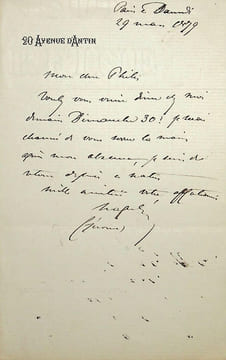 Paris Samedi
29 mars 1879
20 AVENUE D'ANTIN
Mon cher Philippe
Voulez vous venir diner chez moi
demain Dimanche 30? je serai
charmé de vous serrer la main
après mon absence, je suis de
retour depuis
mille amitiés votre affectionné